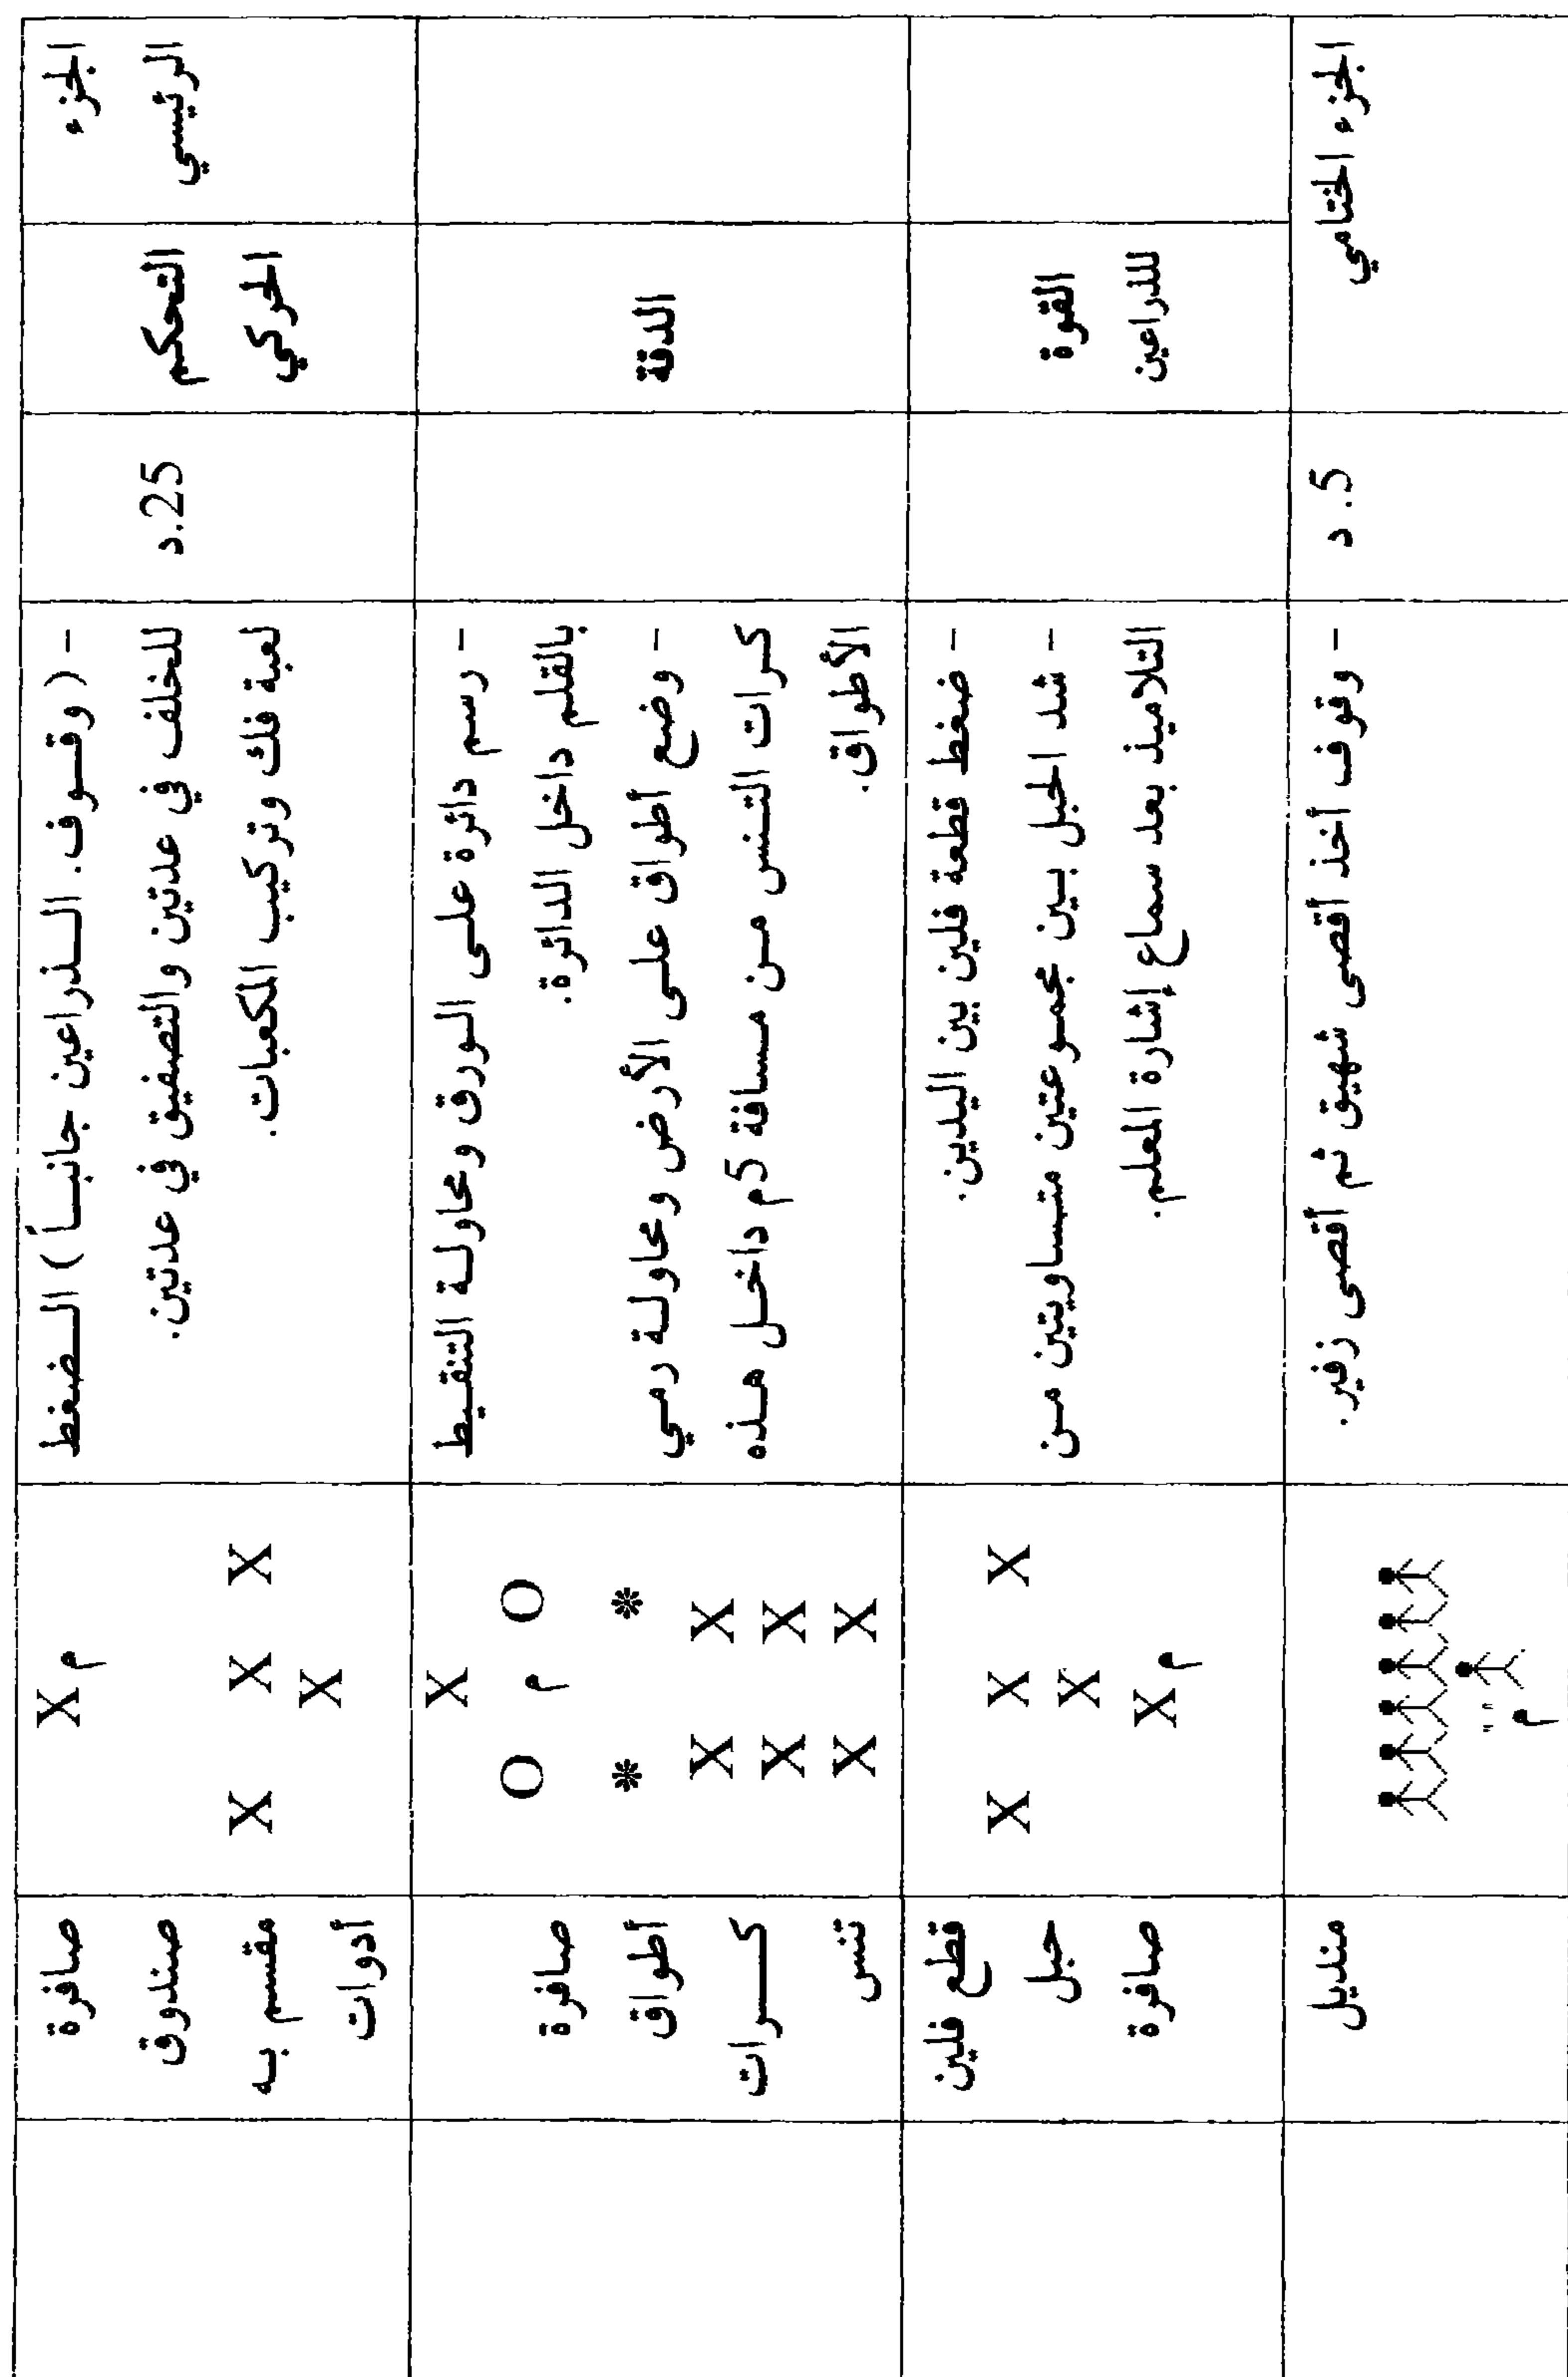 الجزء
الرئيسي
التحكم
الحركي
25.د
- (وقوف. الذراعين جانباً) الضغط
للخلف في عدتين والتصفيق في عدتين.
لعبة فك وتركيب المكعبات.
X م
X X X
X
صافرة
صندوق
مقسم به
أدوات
الدقة
- رسم دائرة على الورق ومحاولة التنقيط
بالقلم داخل الدائرة.
- وضع أطواق على الأرض ومحاولة رمي
كرات التنس من مسافة 5م داخل هذه
الأطواق.
X
O م O
* *
X X
X X
X X
صافرة
أطواق
كرات
تنس
القوة
للذراعين
- ضغط قطعة فلين بين اليدين.
- شد الحبل بين مجموعتين متساويتين من
التلاميذ بعد سماع إشارة المعلم.
X X X
X
X م
قطع فلين
حبل
صافرة
الجزء الختامي
5. د
- وقوف أخذ أقصى شهيق ثم أقصى زفير.
" "
م
منديل